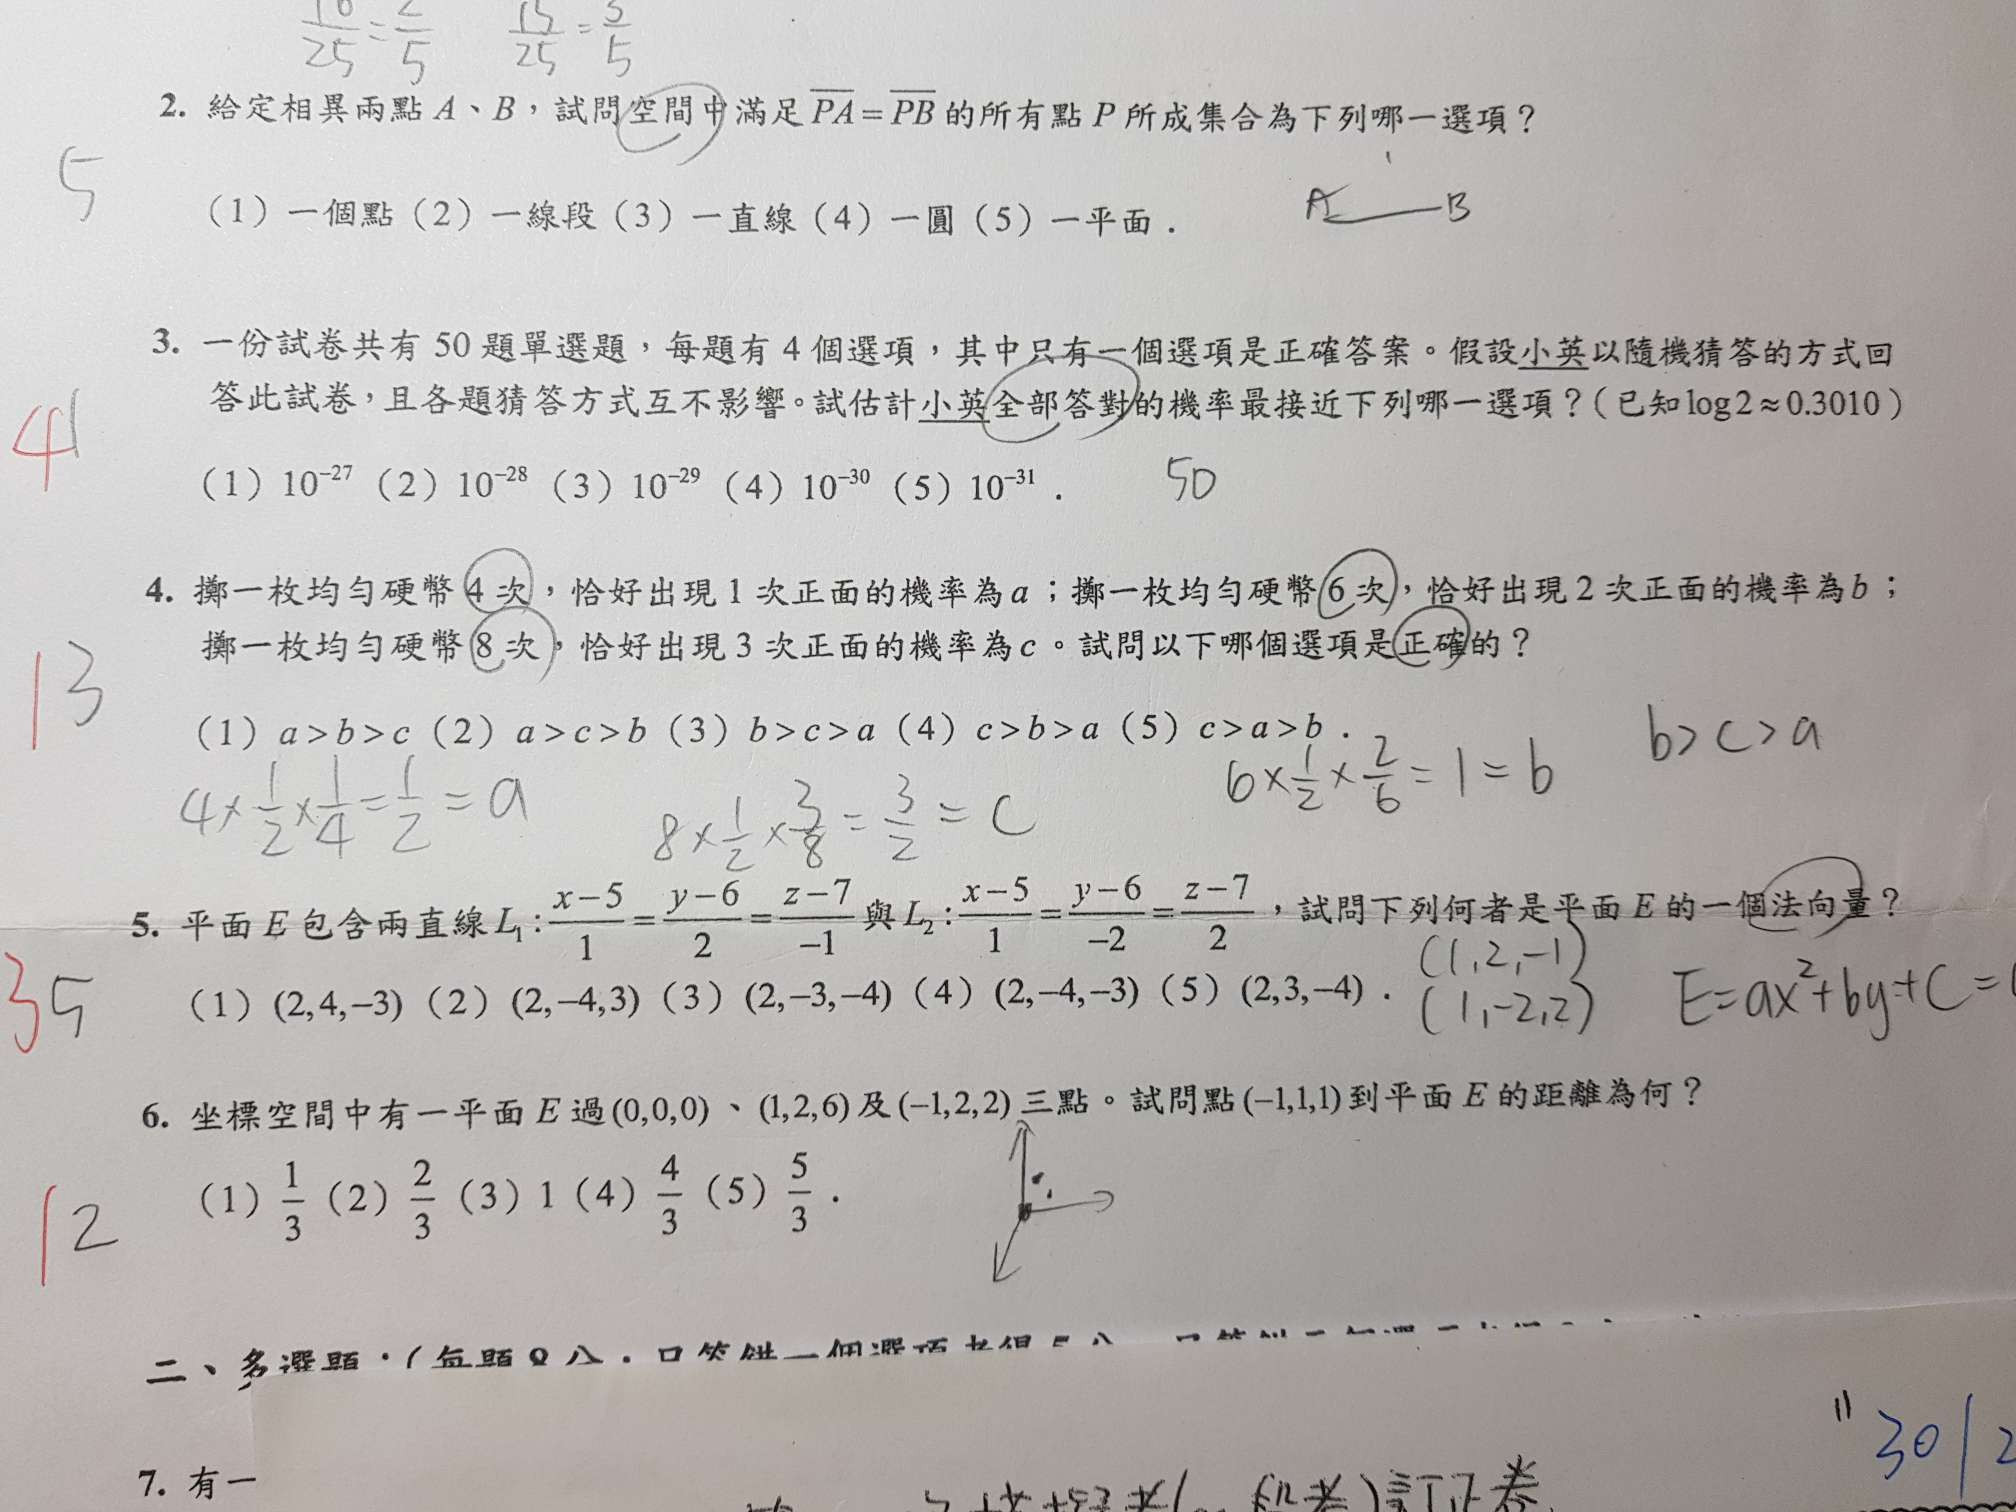 10/25 = 2/5 15/25 = 3/5
2. 給定相異兩點 A、B，試問空間中滿足 PA = PB 的所有點 P 所成集合為下列哪一選項？
5
(1) 一個點 (2) 一線段 (3) 一直線 (4) 一圓 (5) 一平面．
A B
3. 一份試卷共有 50 題單選題，每題有 4 個選項，其中只有一個選項是正確答案。假設小英以隨機猜答的方式回
答此試卷，且各題猜答方式互不影響。試估計小英全部答對的機率最接近下列哪一選項？(已知 log2≈0.3010)
4 1
(1) 10⁻²⁷ (2) 10⁻²⁸ (3) 10⁻²⁹ (4) 10⁻³⁰ (5) 10⁻³¹．
50
4. 擲一枚均勻硬幣 4 次，恰好出現 1 次正面的機率為 a；擲一枚均勻硬幣 6 次，恰好出現 2 次正面的機率為 b；
擲一枚均勻硬幣 8 次，恰好出現 3 次正面的機率為 c。試問以下哪個選項是正確的？
1 3
(1) a>b>c (2) a>c>b (3) b>c>a (4) c>b>a (5) c>a>b．
b>c>a
4×1/2×1/4=1/2=a
8×1/2×3/8=3/2=c
6×1/2×2/6=1=b
5. 平面 E 包含兩直線 L₁: (x−5)/1 = (y−6)/2 = (z−7)/−1 與 L₂: (x−5)/1 = (y−6)/−2 = (z−7)/2，試問下列何者是平面 E 的一個法向量？
3 5
(1) (2,4,−3) (2) (2,−4,3) (3) (2,−3,−4) (4) (2,−4,−3) (5) (2,3,−4)．
(1,2,−1)
(1,−2,2)
E=ax²+by+C=
6. 坐標空間中有一平面 E 過(0,0,0)、(1,2,6)及(−1,2,2)三點。試問點(−1,1,1)到平面 E 的距離為何？
1 2
(1) 1/3 (2) 2/3 (3) 1 (4) 4/3 (5) 5/3．
二、多選題：(每題8分，只答錯一個選項者得5分
7. 有一
訂正卷
30/2